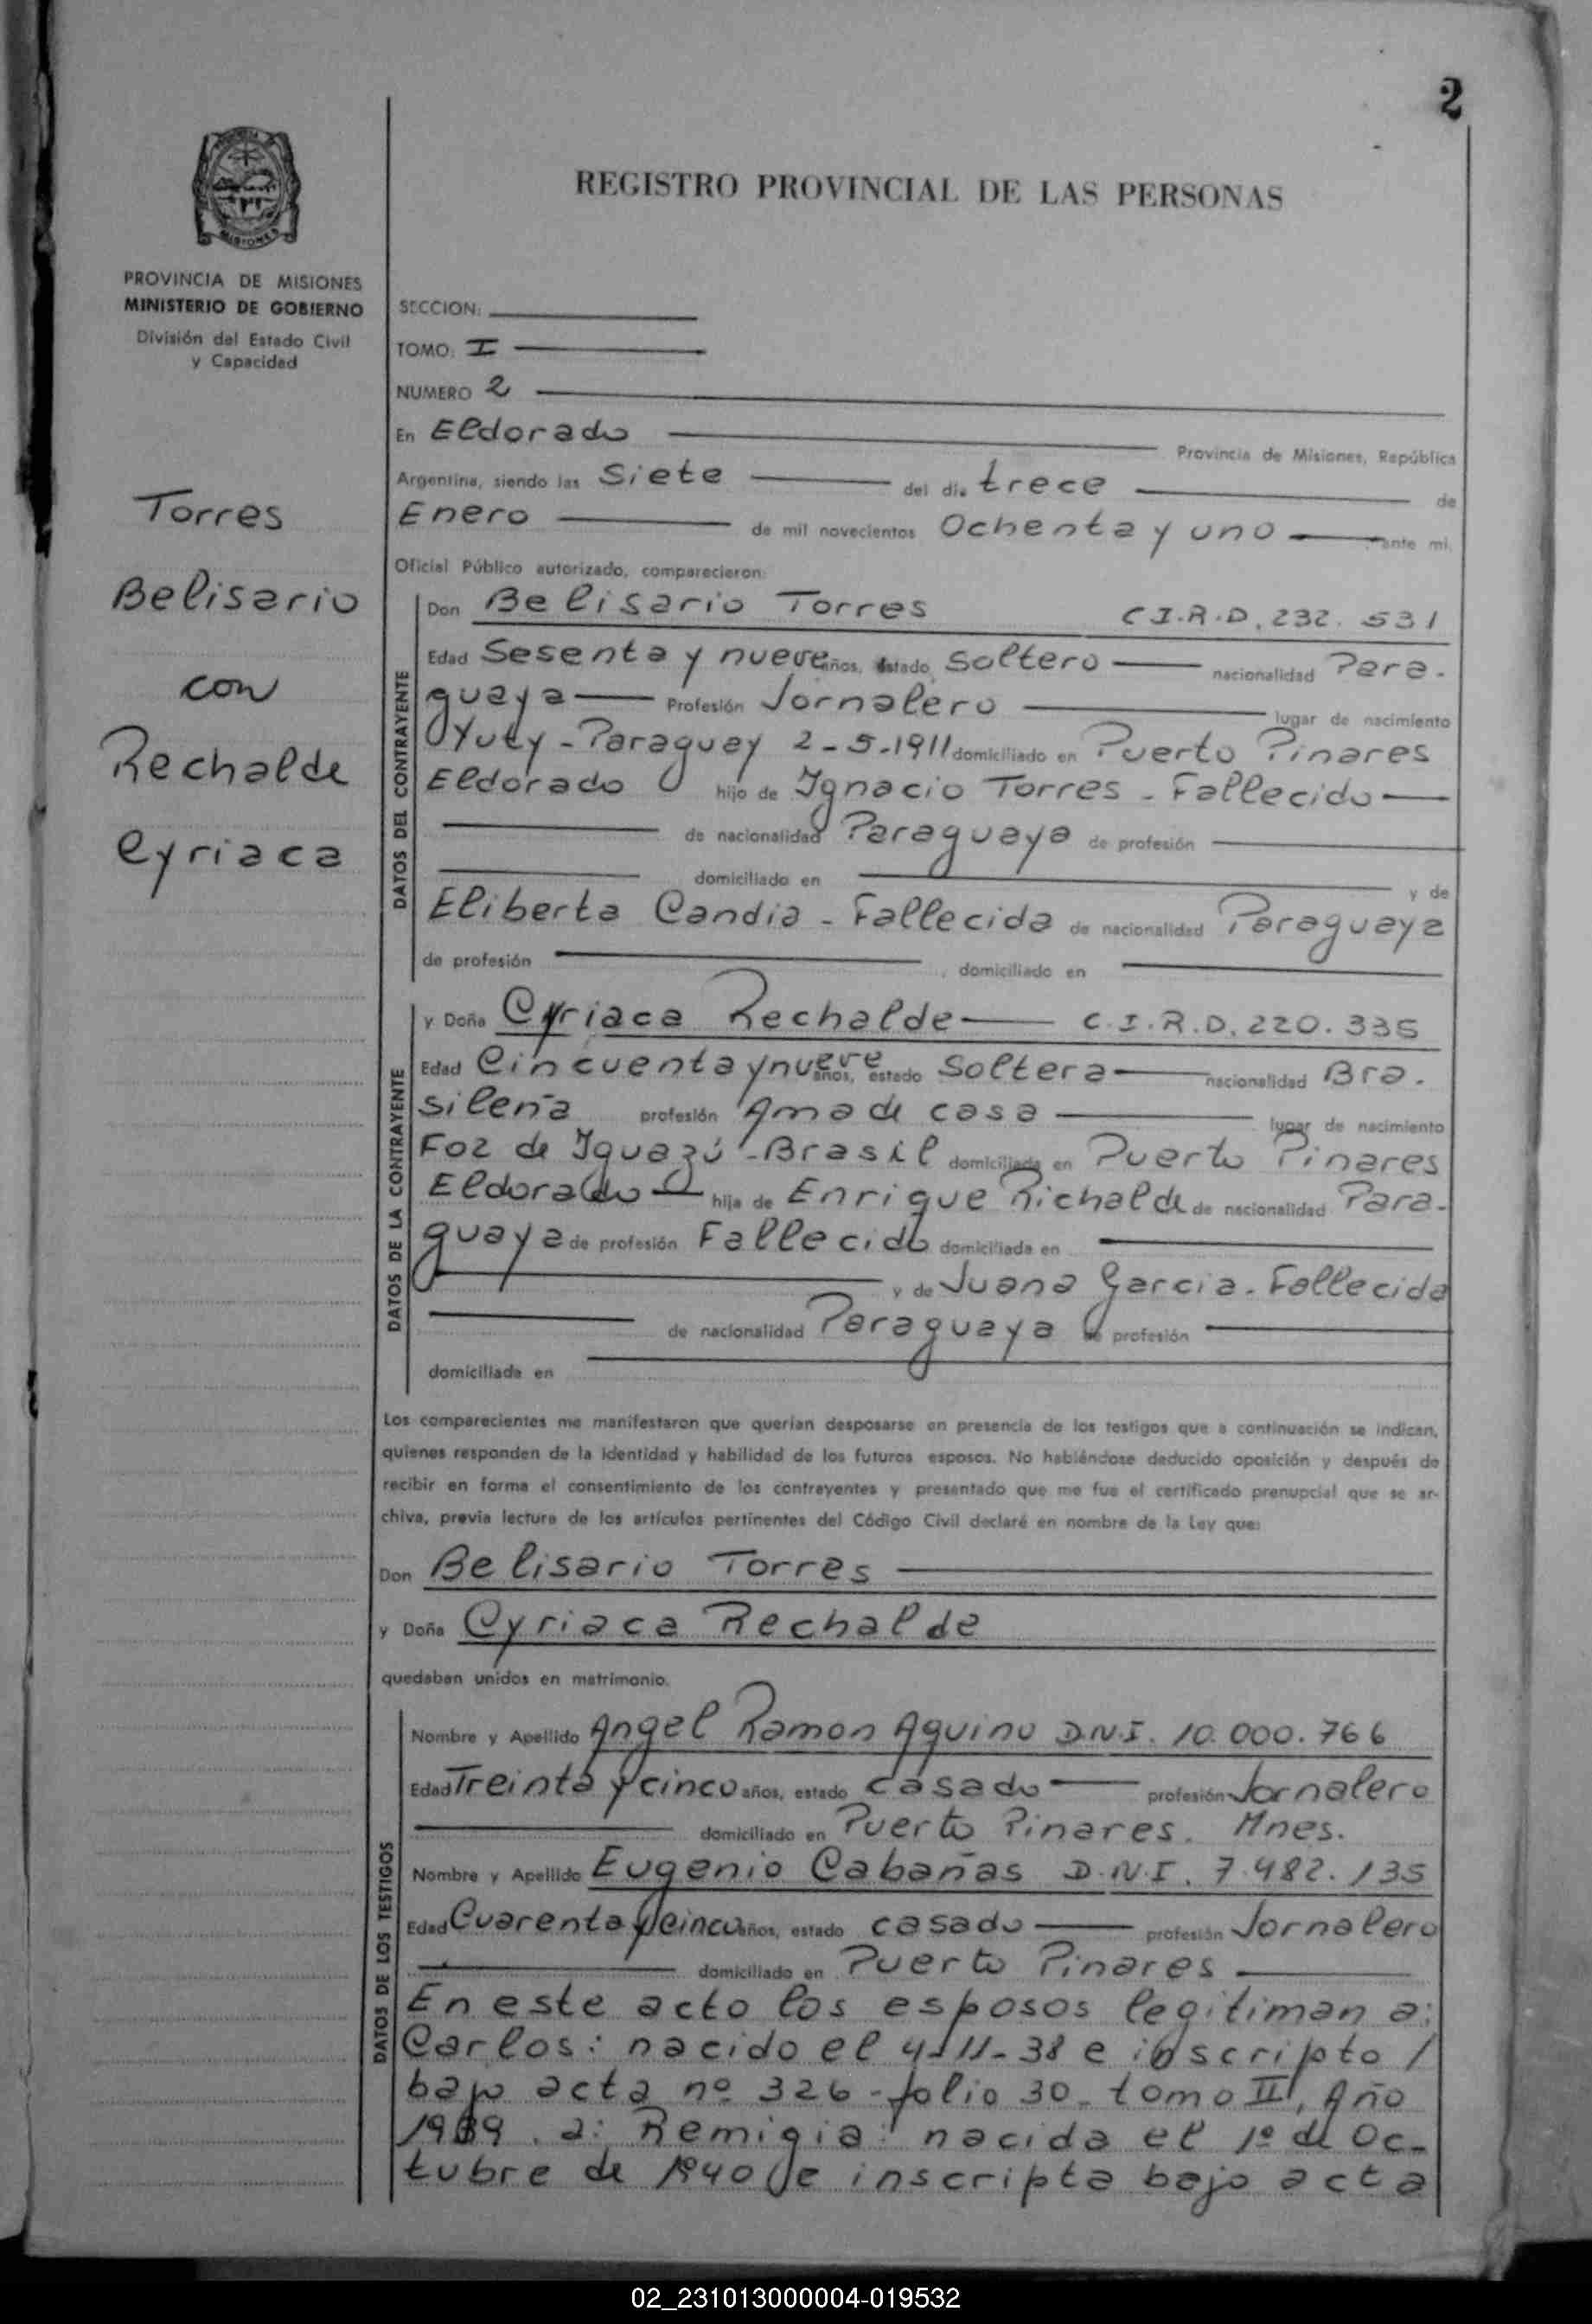 2
REGISTRO PROVINCIAL DE LAS PERSONAS
MISIONES
PROVINCIA DE MISIONES
MINISTERIO DE GOBIERNO
División del Estado Civil
y Capacidad
Torres
Belisario
con
Rechalde
Cyriaca
SECCION:
TOMO: I
NUMERO 2
En Eldorado Provincia de Misiones, República
Argentina, siendo las Siete del día trece de
Enero de mil novecientos Ochenta y uno ante mi,
Oficial Público autorizado, comparecieron:
DATOS DEL CONTRAYENTE
Don Belisario Torres C.I.R.D. 232.531
Edad Sesenta y nueve años, estado Soltero nacionalidad Para-
guaya Profesión Jornalero lugar de nacimiento
Yuty - Paraguay 2-5-1911 domiciliado en Puerto Pinares
Eldorado hijo de Ygnacio Torres - Fallecido
de nacionalidad Paraguaya de profesión
domiciliado en y de
Eliberta Candia - Fallecida de nacionalidad Paraguaya
de profesión , domiciliado en
DATOS DE LA CONTRAYENTE
y Doña Cyriaca Rechalde C.I.R.D. 220.335
Edad Cincuenta y nueve años, estado Soltera nacionalidad Bra-
sileña profesión Ama de casa lugar de nacimiento
Foz de Yguazú - Brasil domiciliada en Puerto Pinares
Eldorado hija de Enrique Richalde de nacionalidad Para-
guaya de profesión Fallecido domiciliada en
y de Juana Garcia - Fallecida
de nacionalidad Paraguaya de profesión
domiciliada en
Los comparecientes me manifestaron que querían desposarse en presencia de los testigos que a continuación se indican,
quienes responden de la identidad y habilidad de los futuros esposos. No habiéndose deducido oposición y después de
recibir en forma el consentimiento de los contrayentes y presentado que me fue el certificado prenupcial que se ar-
chiva, previa lectura de los artículos pertinentes del Código Civil declaré en nombre de la Ley que:
Don Belisario Torres
y Doña Cyriaca Rechalde
quedaban unidos en matrimonio.
DATOS DE LOS TESTIGOS
Nombre y Apellido Angel Ramon Aquino D.N.I. 10.000.766
Edad Treinta y cinco años, estado casado profesión Jornalero
domiciliado en Puerto Pinares. Mnes.
Nombre y Apellido Eugenio Cabañas D.N.I. 7.482.135
Edad Cuarenta y cinco años, estado casado profesión Jornalero
domiciliado en Puerto Pinares
En este acto los esposos legitiman a:
Carlos: nacido el 4-11-38 e inscripto /
bajo acta nº 326 - folio 30 - tomo II, Año
1939. a: Remigia: nacida el 1º de Oc-
tubre de 1940 e inscripta bajo acta
02_231013000004-019532